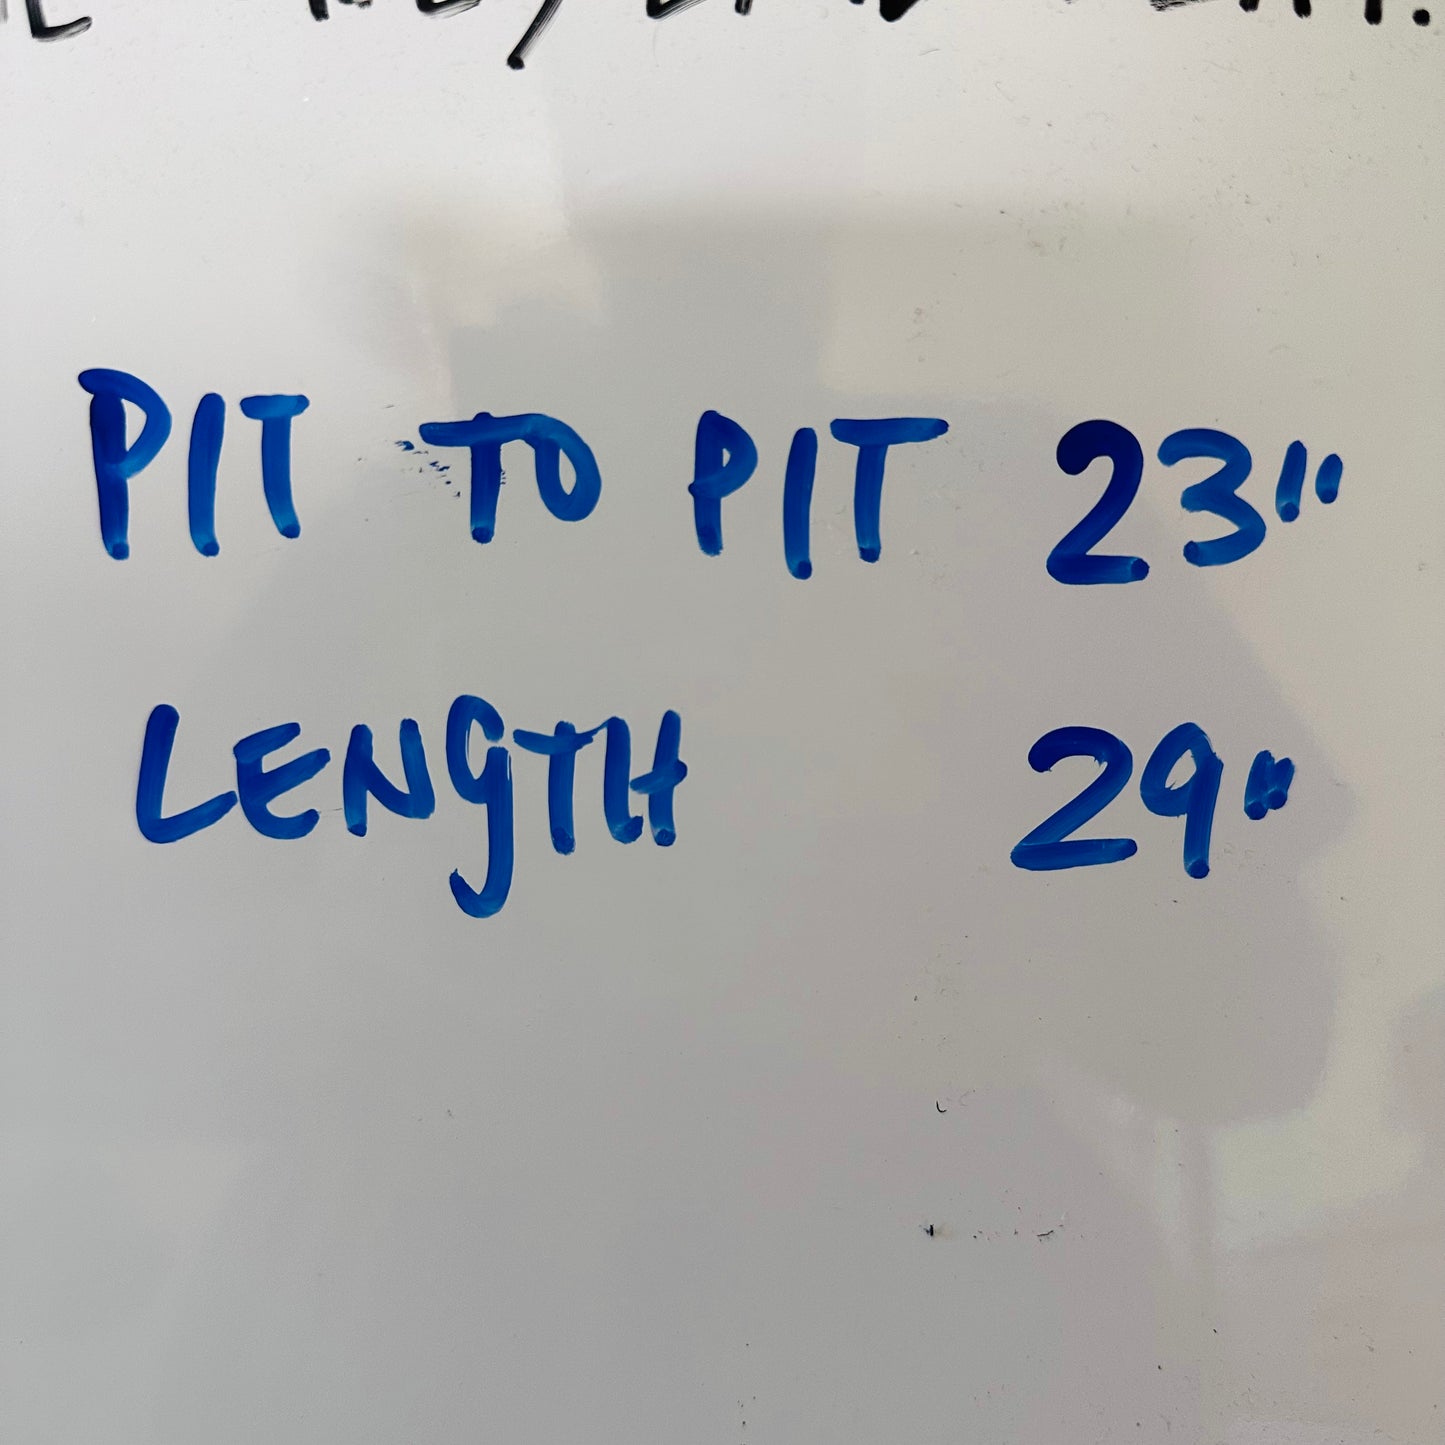 PIT TO PIT 23"
LENgTH 29"